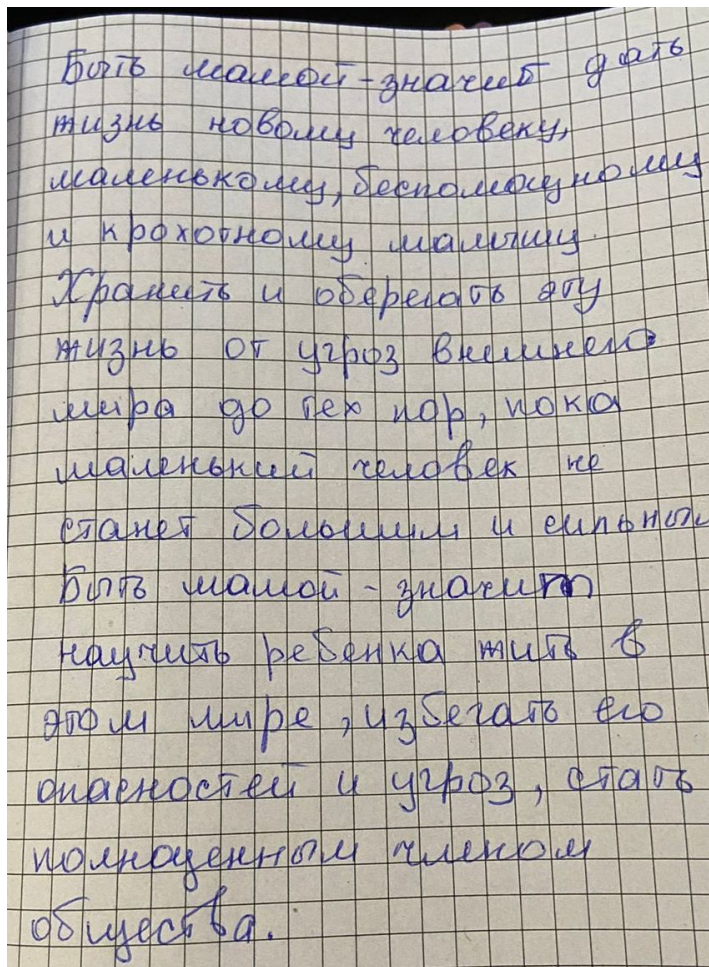 Быть мамой - значит дать
жизнь новому человеку,
маленькому, беспомощному
и крохотному малышу.
Хранить и оберегать эту
жизнь от угроз внешнего
мира до тех пор, пока
маленький человек не
станет большим и сильным
Быть мамой - значит
научить ребенка жить в
этом мире, избегать его
опасностей и угроз, стать
полноценным членом
общества.